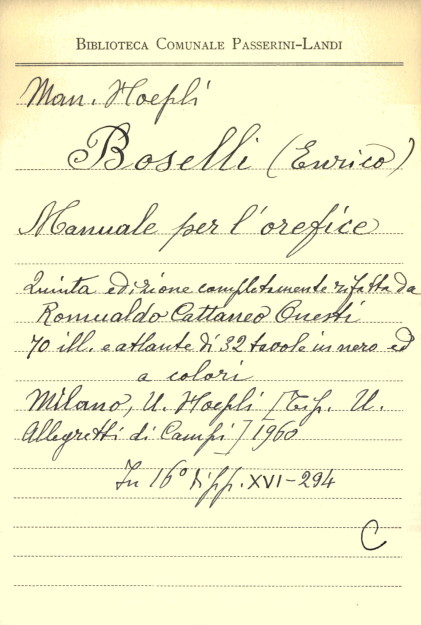 BIBLIOTECA COMUNALE PASSERINI-LANDI
Man. Hoepli
Boselli (Enrico)
Manuale per l'orefice
Quinta edizione completamente rifatta da
Romualdo Cattaneo Onesti
70 ill. e atlante di 32 tavole in nero ed
a colori
Milano, U. Hoepli [Tip. U.
Allegretti di Campi] 1960
In 16° di pp. XVI-294
C